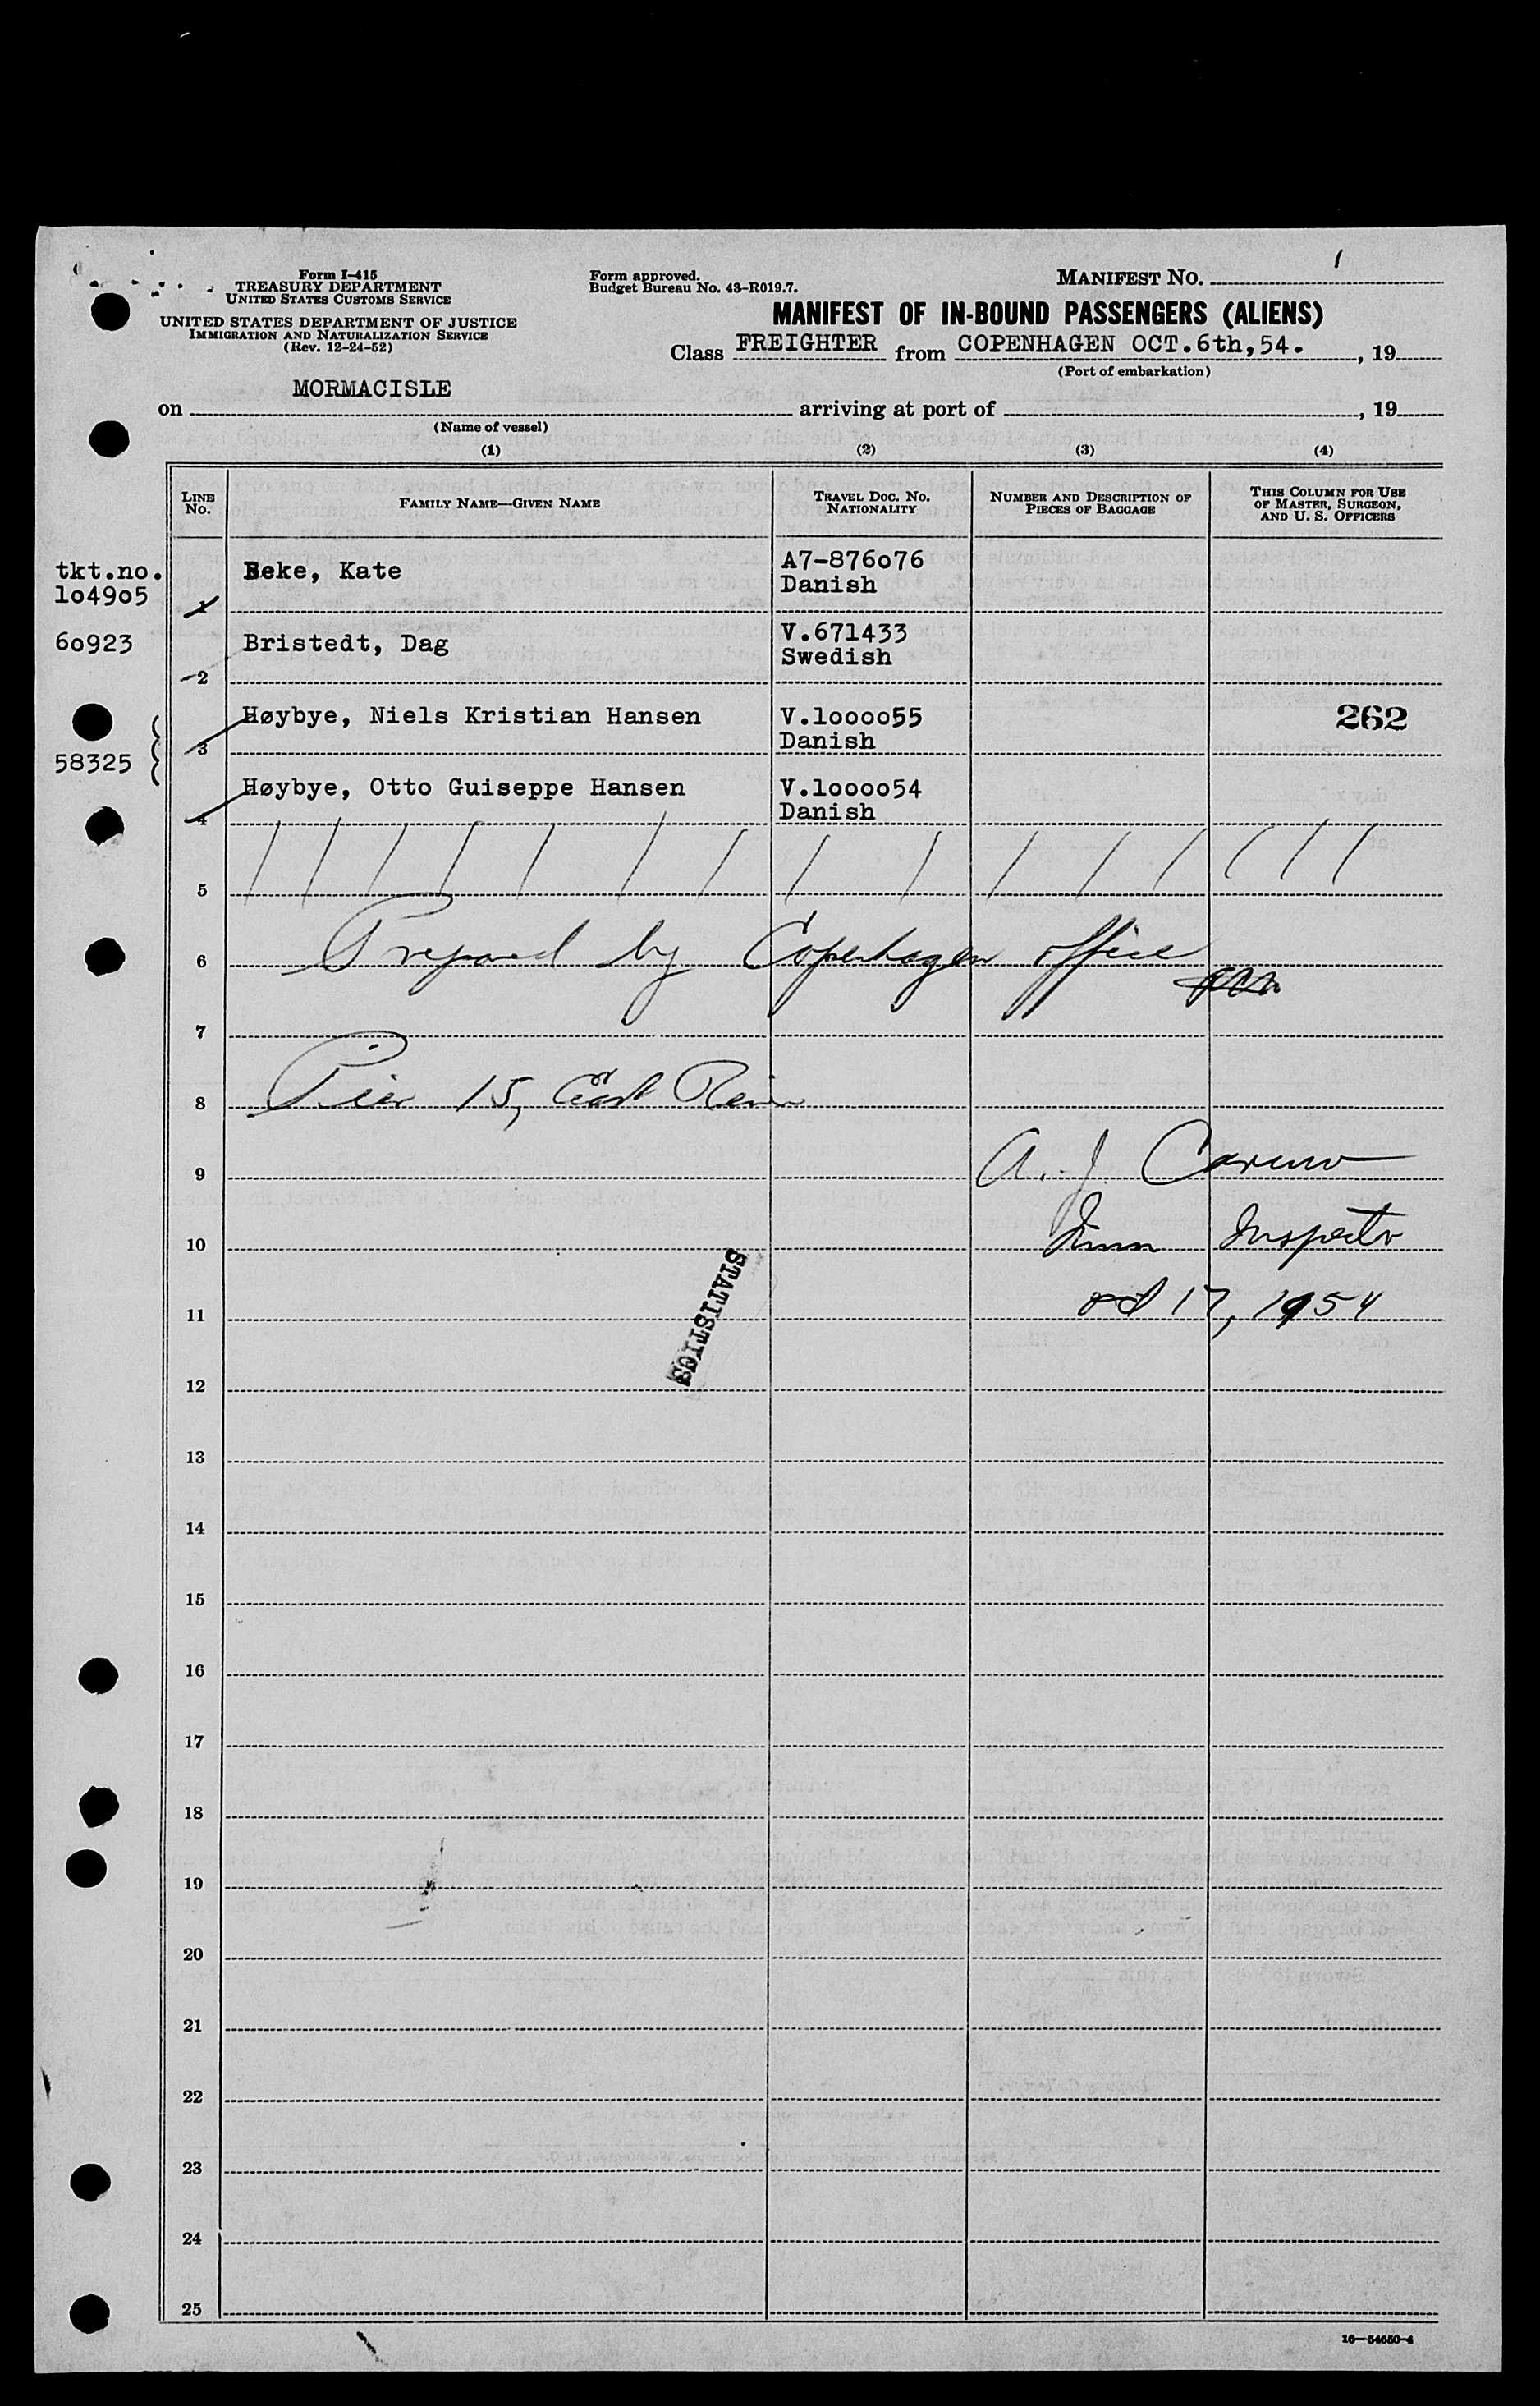 Form I-415
TREASURY DEPARTMENT
UNITED STATES CUSTOMS SERVICE
UNITED STATES DEPARTMENT OF JUSTICE
IMMIGRATION AND NATURALIZATION SERVICE
(Rev. 12-24-52)
Form approved.
Budget Bureau No. 43-R019.7.
MANIFEST NO. 1
MANIFEST OF IN-BOUND PASSENGERS (ALIENS)
Class FREIGHTER from COPENHAGEN OCT.6th,54. , 19
(Port of embarkation)
on MORMACISLE arriving at port of , 19
(Name of vessel)
(1) (2) (3) (4)
LINE No. FAMILY NAME—GIVEN NAME TRAVEL DOC. NO. NATIONALITY NUMBER AND DESCRIPTION OF PIECES OF BAGGAGE THIS COLUMN FOR USE OF MASTER, SURGEON, AND U. S. OFFICERS
tkt.no. Beke, Kate A7-876o76
lo49o5 1 Danish
6o923 Bristedt, Dag V.671433
2 Swedish
Høybye, Niels Kristian Hansen V.loooo55 262
3 Danish
58325
Høybye, Otto Guiseppe Hansen V.loooo54
4 Danish
5
6 Prepared by Copenhagen office
7
8 Pier 15, East River
9 A. J. Caruso
10 Imm Inspector
11 Oct 17, 1954
STATISTICS
12
13
14
15
16
17
18
19
20
21
22
23
24
25
16—54650-4